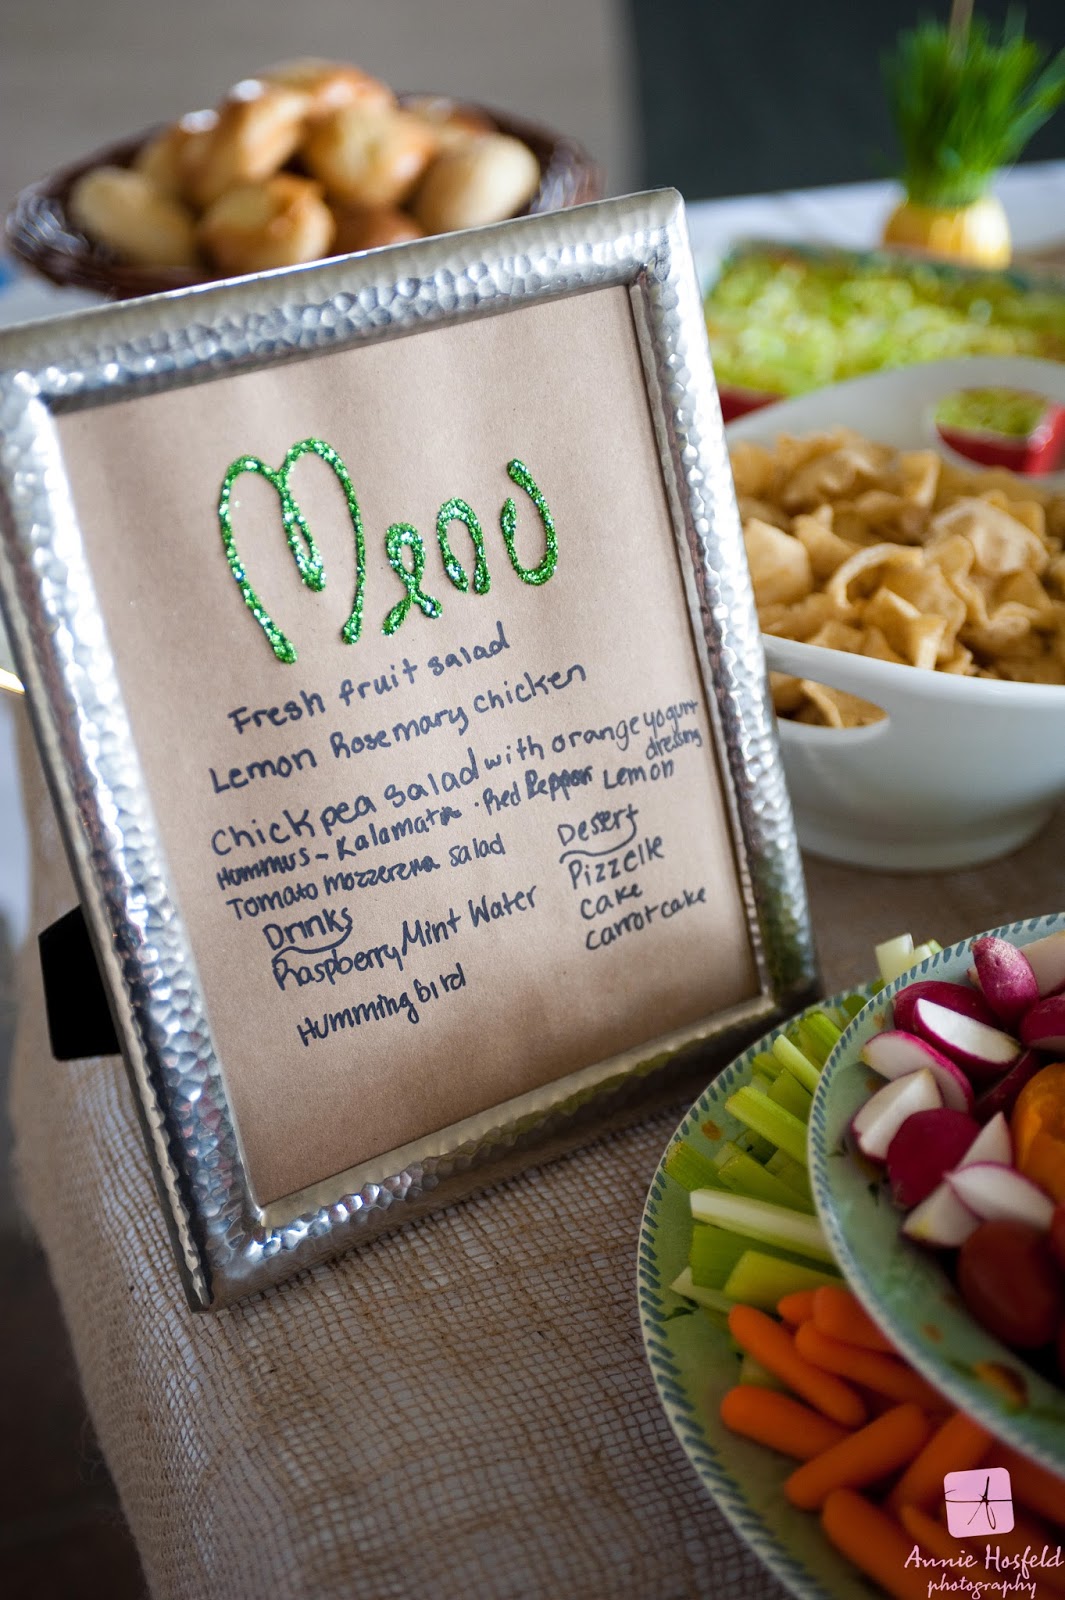 Menu
Fresh fruit salad
Lemon Rosemary Chicken
Chickpea salad with orange yogurt
dressing
Hummus - Kalamata · Red Pepper Lemon
Tomato mozzerena salad
Drinks
Raspberry Mint Water
Hummingbird
Desert
Pizzelle
cake
carrot cake
Annie Hosfeld
photography